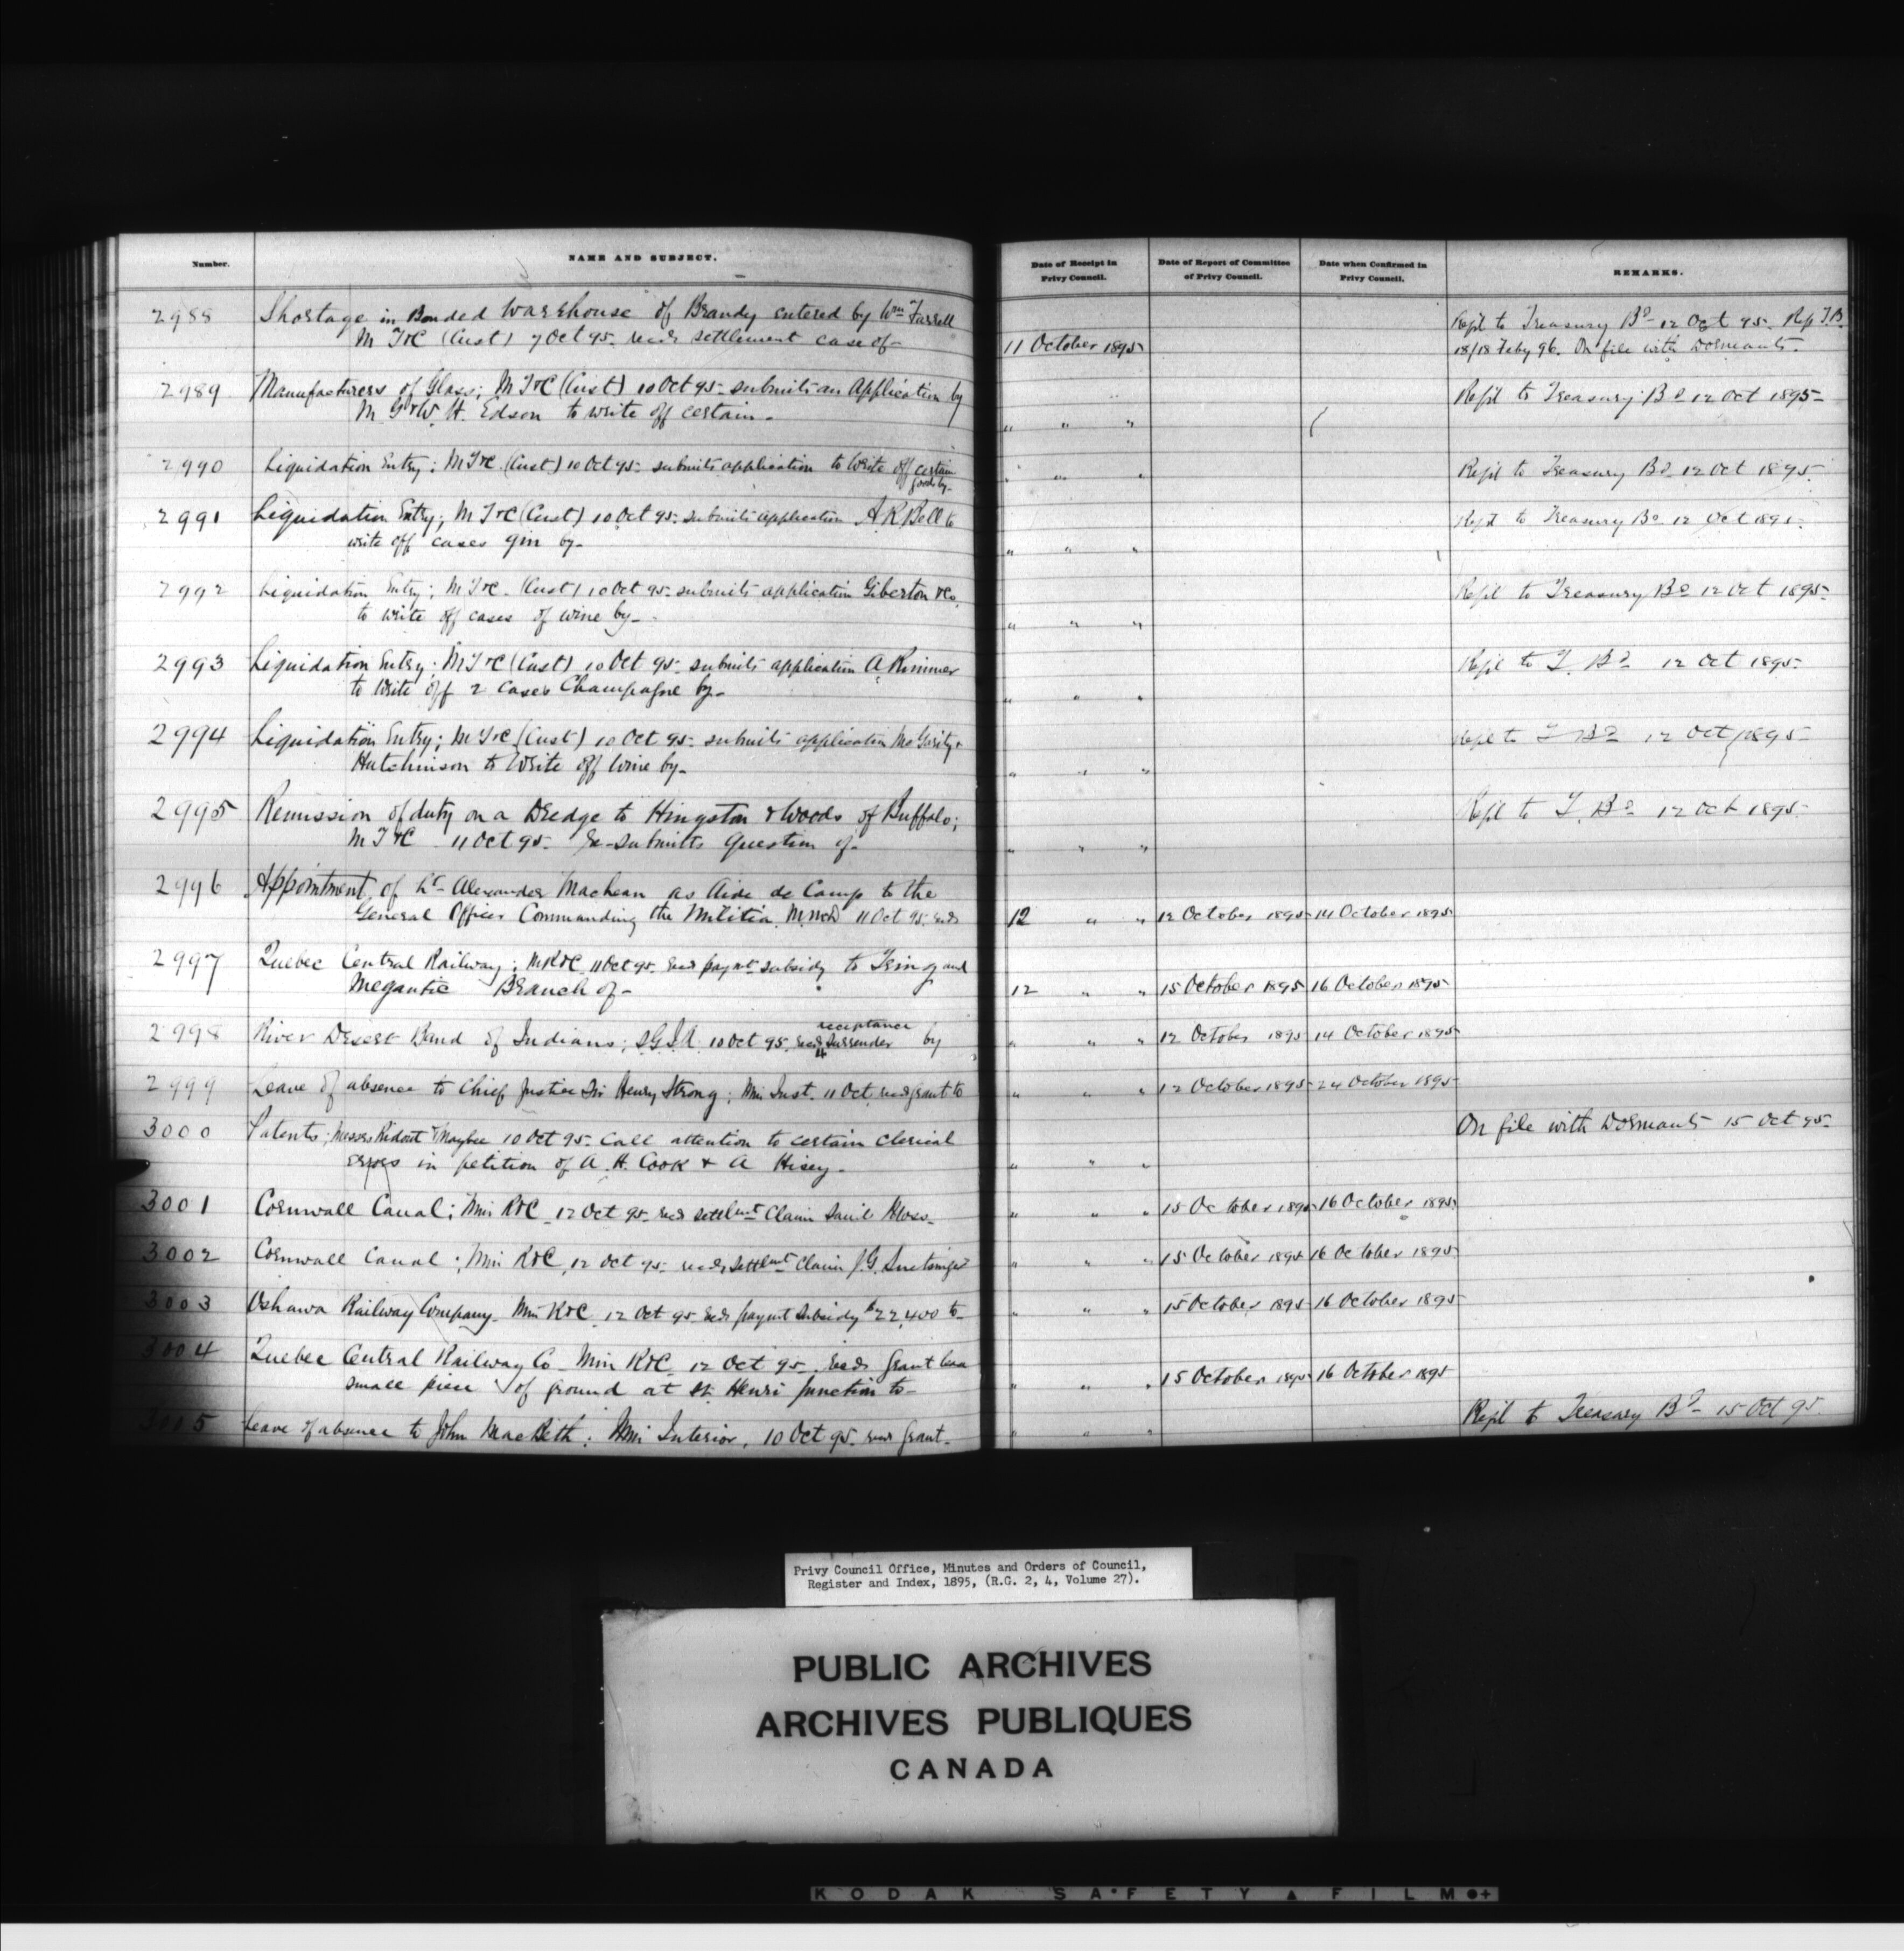 Number. NAME AND SUBJECT. Date of Receipt in Privy Council. Date of Report of Committee of Privy Council. Date when Confirmed in Privy Council. REMARKS.
2988 Shortage in Bonded Warehouse of Brandy entered by Wm Farrell Ref'd to Treasury Bd 12 Oct 95. Rep T.B.
M T&C (Cust) 7 Oct 95. recds settlement case of- 11 October 1895 18/18 Feby 96. On file with Dormants.
2989 Manufacturers of Glass; M T&C (Cust) 10 Oct 95 submits an Application by Ref'd to Treasury Bd 12 Oct 1895
M G & W. H. Edson to write off certain. " " "
2990 Liquidation Entry; M T&C (Cust) 10 Oct 95 submits application to write off certain " " " Ref'd to Treasury Bd 12 Oct 1895
goods by-
2991 Liquidation Entry; M T&C (Cust) 10 Oct 95 submits application A R Bell to Ref'd to Treasury Bd 12 Oct 1895
write off cases gin by- " " "
2992 Liquidation Entry; M T&C. (Cust) 10 Oct 95 submits application Giberton & Co. Ref'd to Treasury Bd 12 Oct 1895
to write off cases of wine by- " " "
2993 Liquidation Entry; M T&C (Cust) 10 Oct 95 submits application A Rimmer Ref'd to T. Bd 12 Oct 1895
to write off 2 cases Champagne by- " " "
2994 Liquidation Entry; M T&C (Cust) 10 Oct 95 submits application McGarity & Ref'd to T Bd 12 Oct 1895
Hutchinson to write off wine by- " " "
2995 Remission of duty on a Dredge to Hingston & Woods of Buffalo; Ref'd to T. Bd 12 Oct 1895
M T&C 11 Oct 95 Re-submits question of- " " "
2996 Appointment of Lt Alexander MacLean as Aide de Camp to the
General Officer Commanding the Militia. M M&D 11 Oct 95 recds 12 " " 12 October 1895 14 October 1895
2997 Quebec Central Railway; M R&C 11 Oct 95 recds paymt subsidy to Tring and
Megantic Branch of- 12 " " 15 October 1895 16 October 1895
2998 River Desert Band of Indians; S.G.I.A. 10 Oct 95. recds acceptance surrender by " " " 12 October 1895 14 October 1895
2999 Leave of absence to Chief Justice Sir Henry Strong; Min Just. 11 Oct recds grant to " " " 12 October 1895 24 October 1895
3000 Patents; Messrs Ridout & Maybee 10 Oct 95 call attention to certain clerical On file with Dormants 15 Oct 95
errors in petition of A. H. Cook & A Hisey. " " "
3001 Cornwall Canal; Min R&C 12 Oct 95 recds settlmt Claim " " " 15 October 1895 16 October 1895
3002 Cornwall Canal; Min R&C, 12 Oct 95 recds settlmt Claim J.G. Snetsinger " " " 15 October 1895 16 October 1895
3003 Oshawa Railway Company Min R&C 12 Oct 95 recds paymt subsidy $22,400 to " " " 15 October 1895 16 October 1895
3004 Quebec Central Railway Co Min R&C 12 Oct 95. recds grant lease
small piece of ground at St. Henri Junction to- " " " 15 October 1895 16 October 1895
3005 Leave of absence to John MacBeth; Min Interior, 10 Oct 95 recds grant. " " " Ref'd to Treasury Bd 15 Oct 95.
Privy Council Office, Minutes and Orders of Council,
Register and Index, 1895, (R.G. 2, 4, Volume 27).
PUBLIC ARCHIVES
ARCHIVES PUBLIQUES
CANADA
KODAK SAFETY FILM